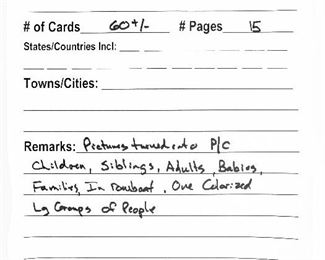 # of Cards 60+/- # Pages 15
States/Countries Incl:
Towns/Cities:
Remarks: Pictures turned into P/C
Children, Siblings, Adults, Babies,
Families, In rowboat, One Colorized
Lg Groups of People